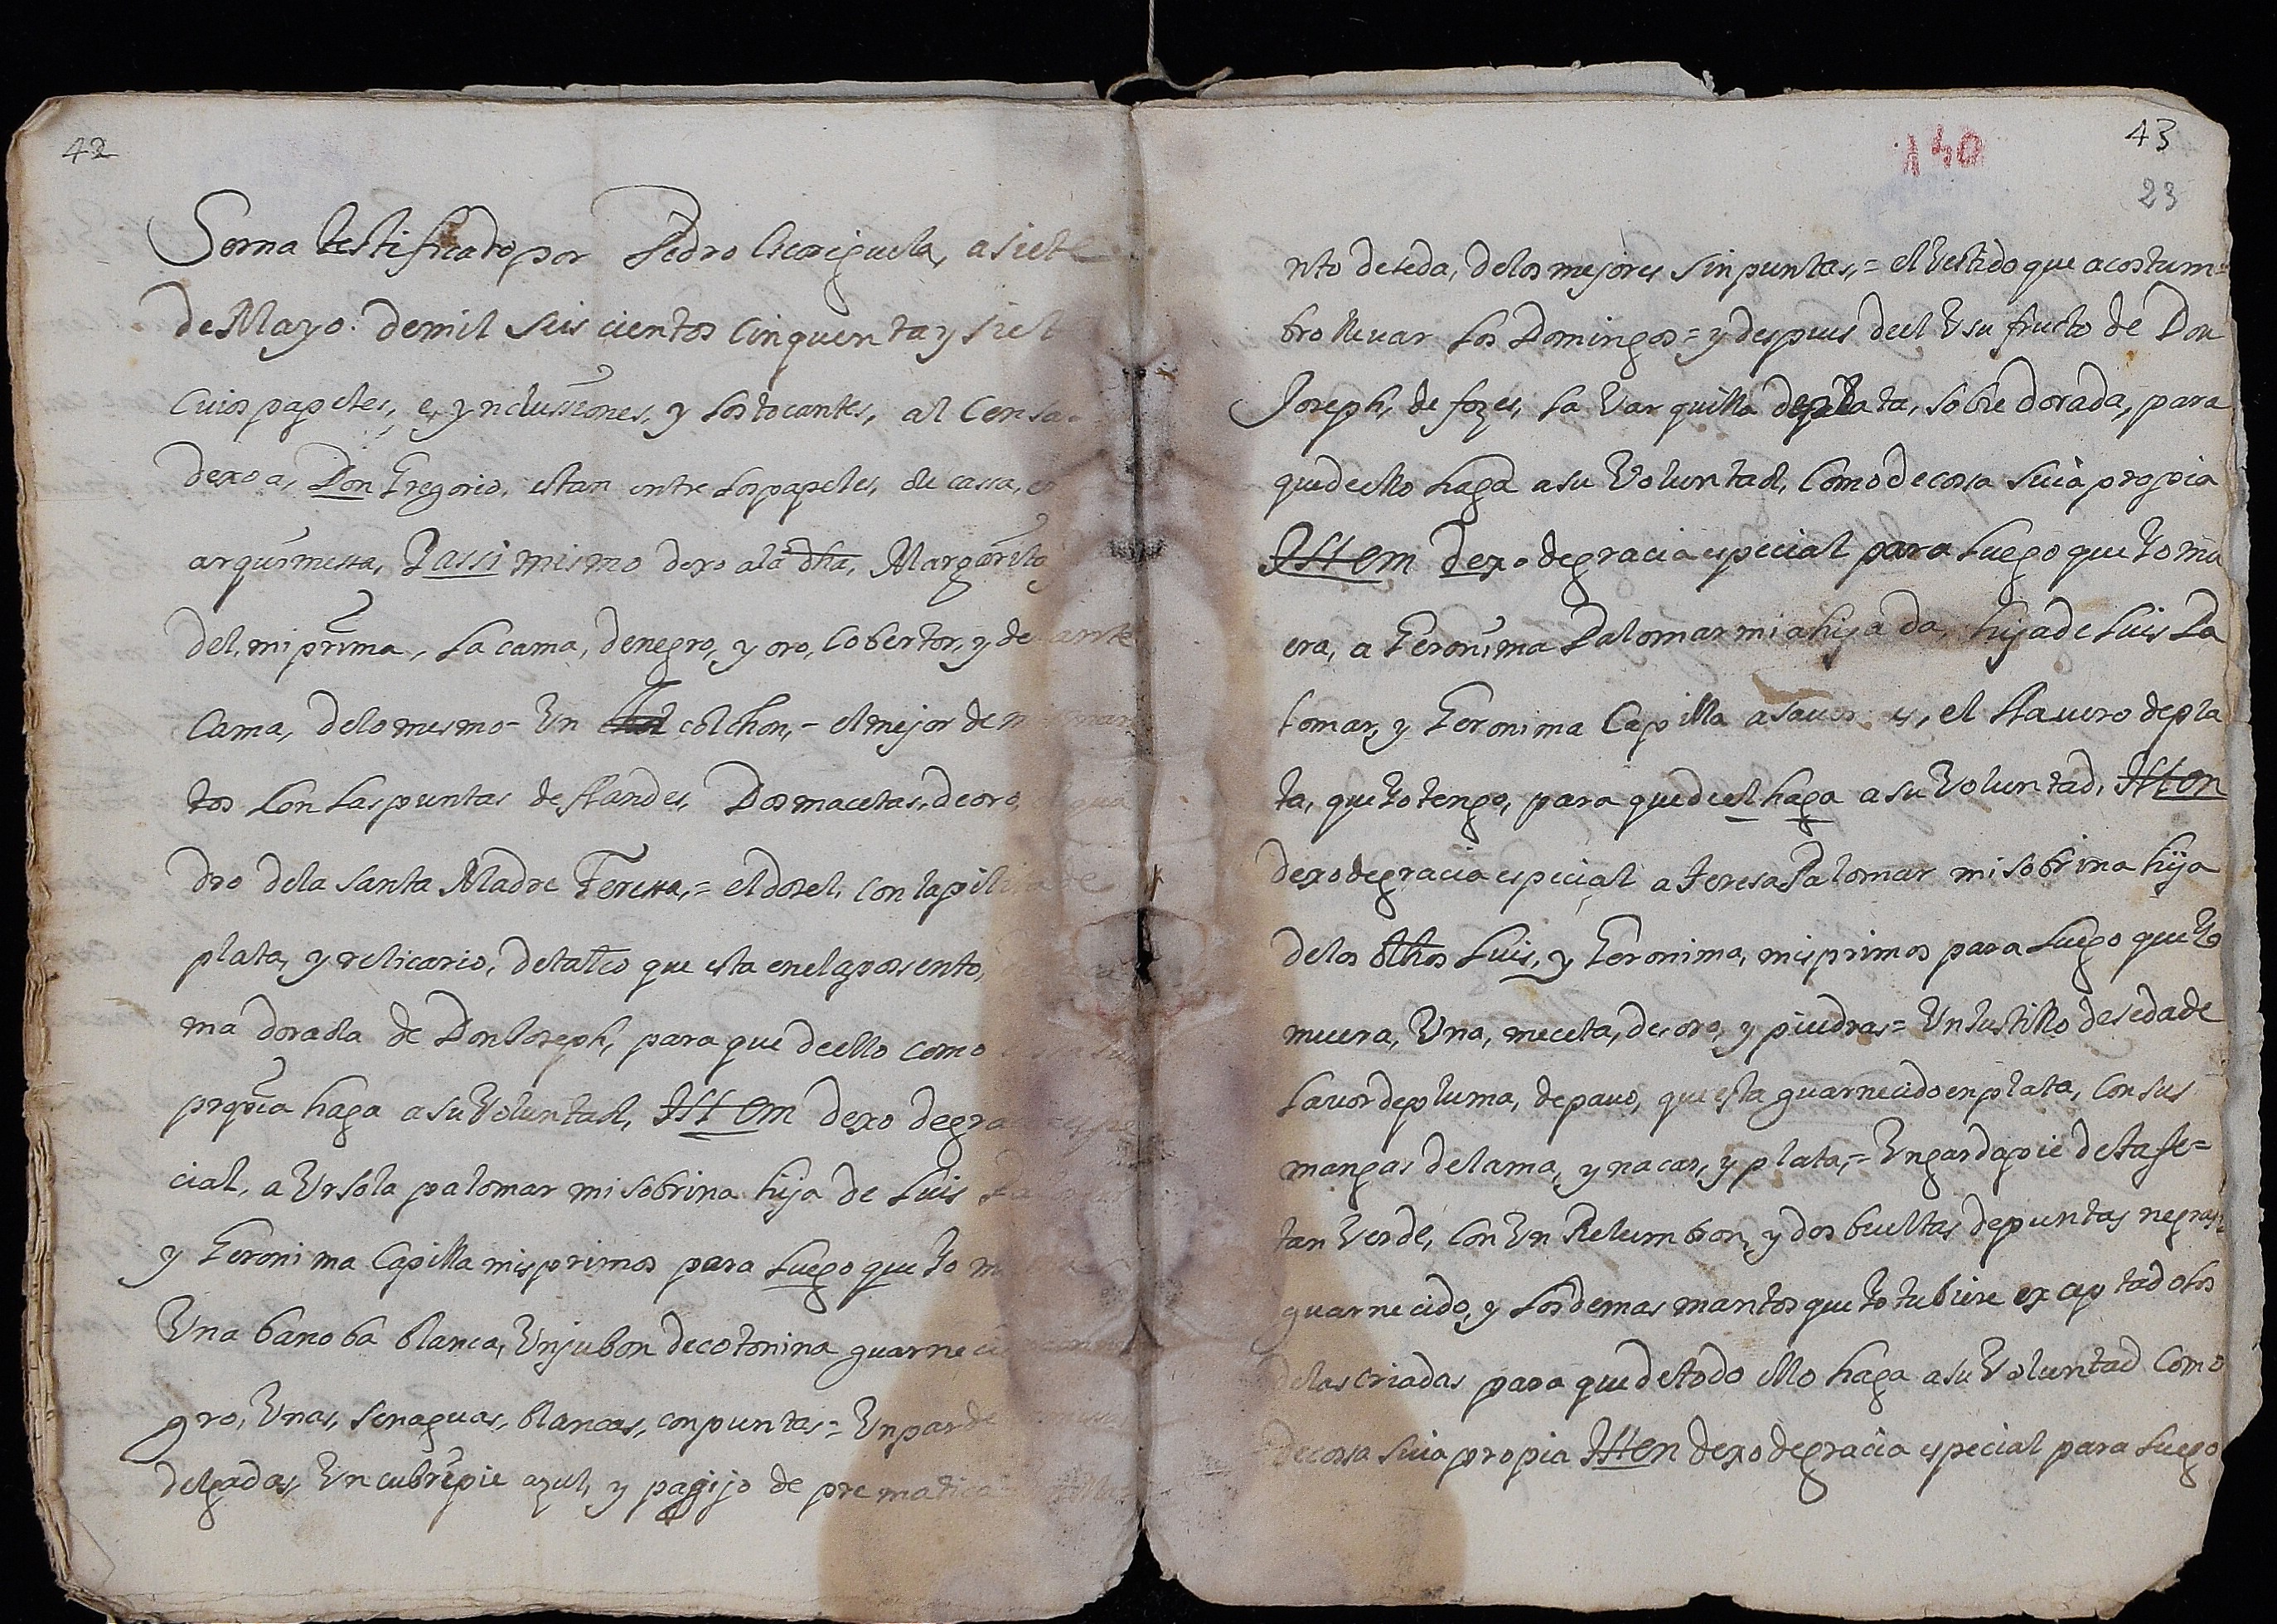 42
Serna testificado por Pedro a siete
de Mayo. de mil seis cientos cinquenta y siet
cuios papeles, e, ynclussiones, y los tocantes, al
dexo a, Don Gregorio, estan entre los papeles, de cassa, en
Y assi mismo dexo a la dha, Margarita
del, mi prima, la cama, de negro, y oro, cobertor, y delante
cama, de lo mesmo - Un colchon, - el mejor de
tos con las puntas de flandes, Dos macetas, de oro,
dro de la santa Madre Teressa, = el dosel, con la
plata, y relicario, de que esta en el aposento,
ma dorada de Don Joseph, para que de ello como
propia haga a su Voluntad, Ittem dexo de gracia espe
cial, a Ursola palomar mi sobrina hija de Luis
y Geronima Capilla mis primos para luego que Yo
Una banoba blanca, Un jubon de cotonina
gro, Unas, senaguas, blancas, con puntas = Un par de
delgadas, Un cubrepie azul, y pagijo de
140
43
23
nto de seda, de los mejores sin puntas, = el Vestido que acostum=
bro llevar los Domingos = y despues de el Usufructo de Don
Joseph, de fozes, la Varquilla de plata, sobre dorada, para
que de ello haga a su Voluntad, como de cossa suia propia
Ittem dexo de gracia especial para luego que Yo mu
era, a Geronima Palomar mi ahijada, hija de Luis Pa
lomar, y Geronima Capilla a saver es, el llavero de pla
ta, que Yo tengo, para que de el haga a su Voluntad, Itten
dexo de gracia especial a Teresa Palomar mi sobrina hija
de los dhos Luis, y Geronima, mis primos para luego que Yo
muera, Una, meceta, de oro, y piedras = Un Justillo de seda de
lavor de pluma, de pavo, que esta guarnecido en plata, con sus
mangas de lama, y nacar, y plata, = Un gardapie de tafe=
tan Verde, con Un Relumbron, y dos bueltas de puntas negras,
guarnecido, y los demas mantos que Yo tubiere exceptado los
de las criadas para que de todo ello haga a su Voluntad como
de cossa suia propia Itten dexo de gracia especial para luego